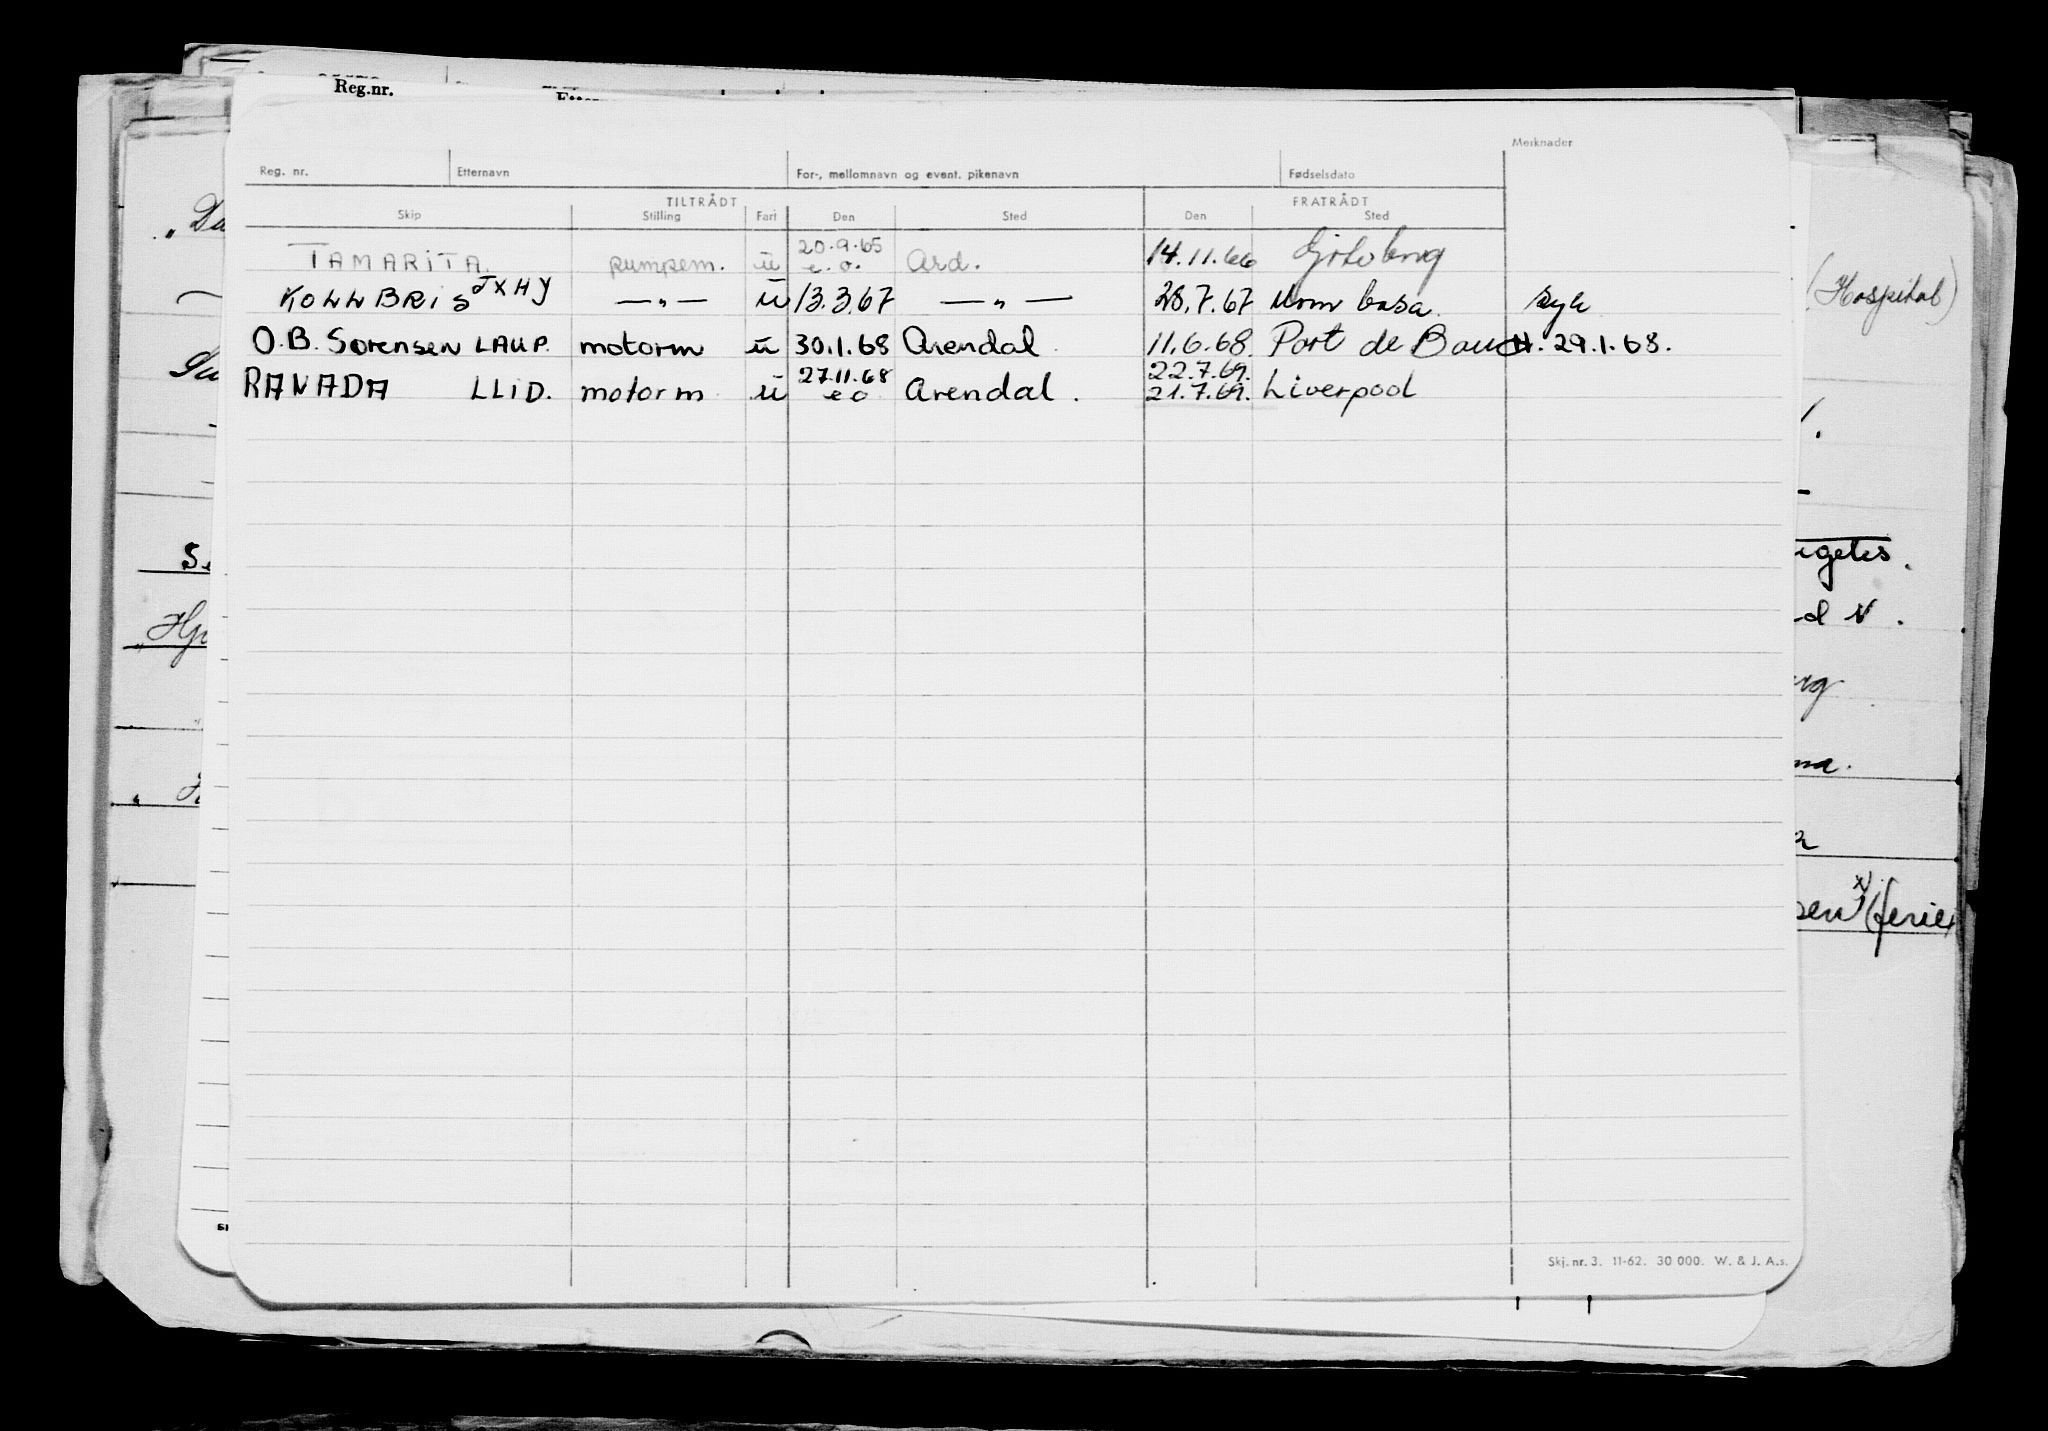 Reg.nr.
Merknader
Reg. nr. Etternavn For-, mellomnavn og event. pikenavn Fødselsdato
TILTRÅDT FRATRÅDT
Skip Stilling Fart Den Sted Den Sted
TAMARITA pumpem. u 20.9.65 e.o. Ard. 14.11.66 Göteborg
KOLLBRIS JXHY —„— u 13.3.67 —„— 28.7.67 syk
O.B. Sørensen LAUP. motorm u 30.1.68 Arendal 11.6.68. Port de Bouc H. 29.1.68.
RANADA LLID. motorm u 27.11.68 e o Arendal. 22.7.69. 21.7.69. Liverpool
(Hospital)
Skj. nr. 3. 11-62. 30 000. W. & J. A.s.